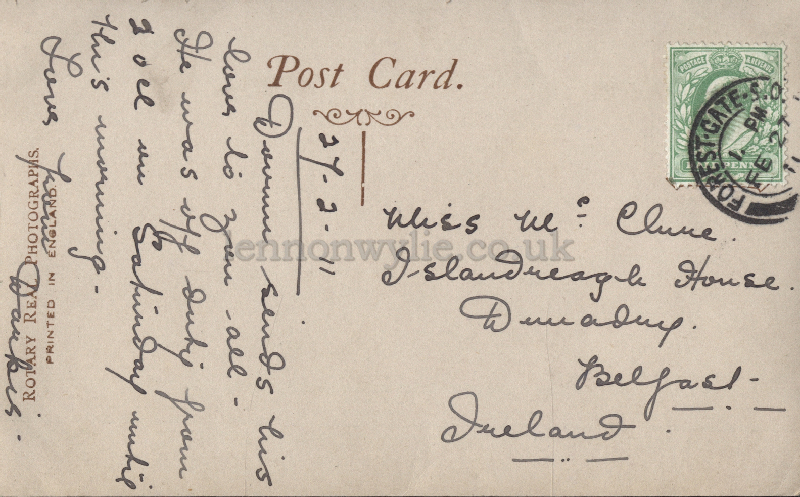 Post Card.
POSTAGE & REVENUE
FOREST·GATE·S.O.
1. PM
FE 27
11
27-2-11
sends his
love to you all -
He was off duty from
2 ocl on Saturday until
this morning -
Love from
Miss Mc Clure.
Islandreagh House.
Dunadry.
Belfast-
Ireland.
ROTARY REAL PHOTOGRAPHS.
PRINTED IN ENGLAND.
lennonwylie.co.uk